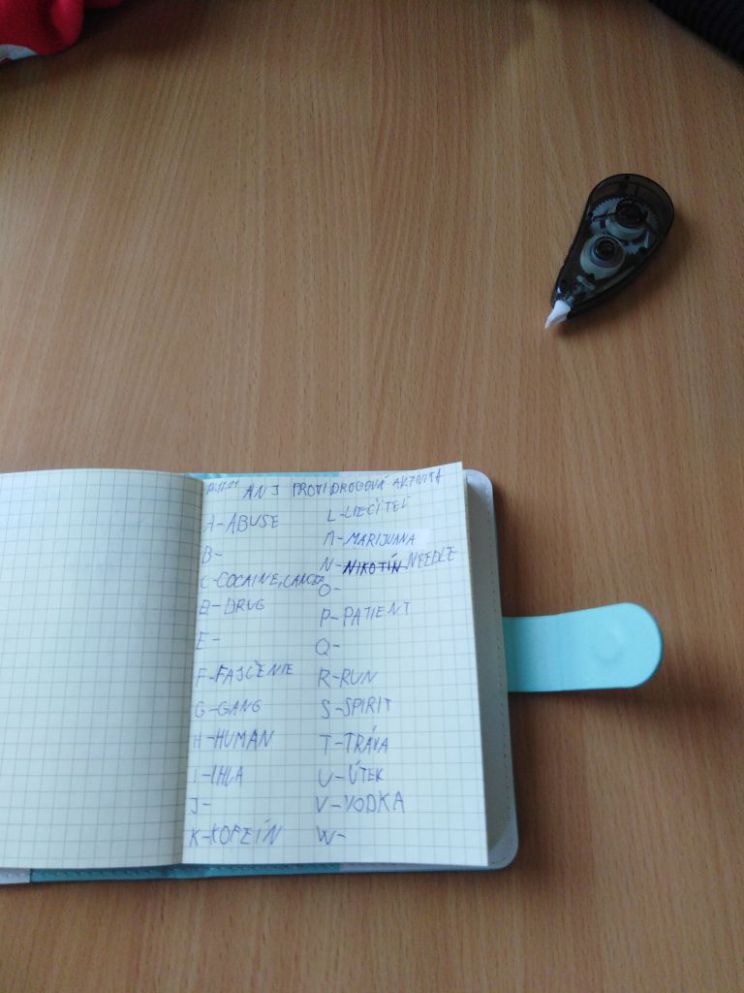 ANJ PROTIDROGOVÁ AKTIVITA
A-ABUSE
B-
C-COCAINE, CANCER
D-DRUG
E-
F-FAJČENIE
G-GANG
H-HUMAN
I-IHLA
J-
K-KOFEIN
L-LIEČITEĽ
M-MARIJUANA
N-NIKOTÍN NEEDLE
O-
P-PATIENT
Q-
R-RUN
S-SPIRIT
T-TRÁVA
U-ÚTEK
V-VODKA
W-